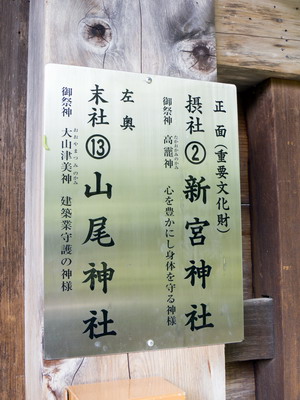 正面(重要文化財)
摂社②新宮神社
御祭神 高龗神 心を豊かにし身体を守る神様
たかおかみのかみ
左奥
末社⑬山尾神社
御祭神 大山津美神 建築業守護の神様
おおやまつみのかみ